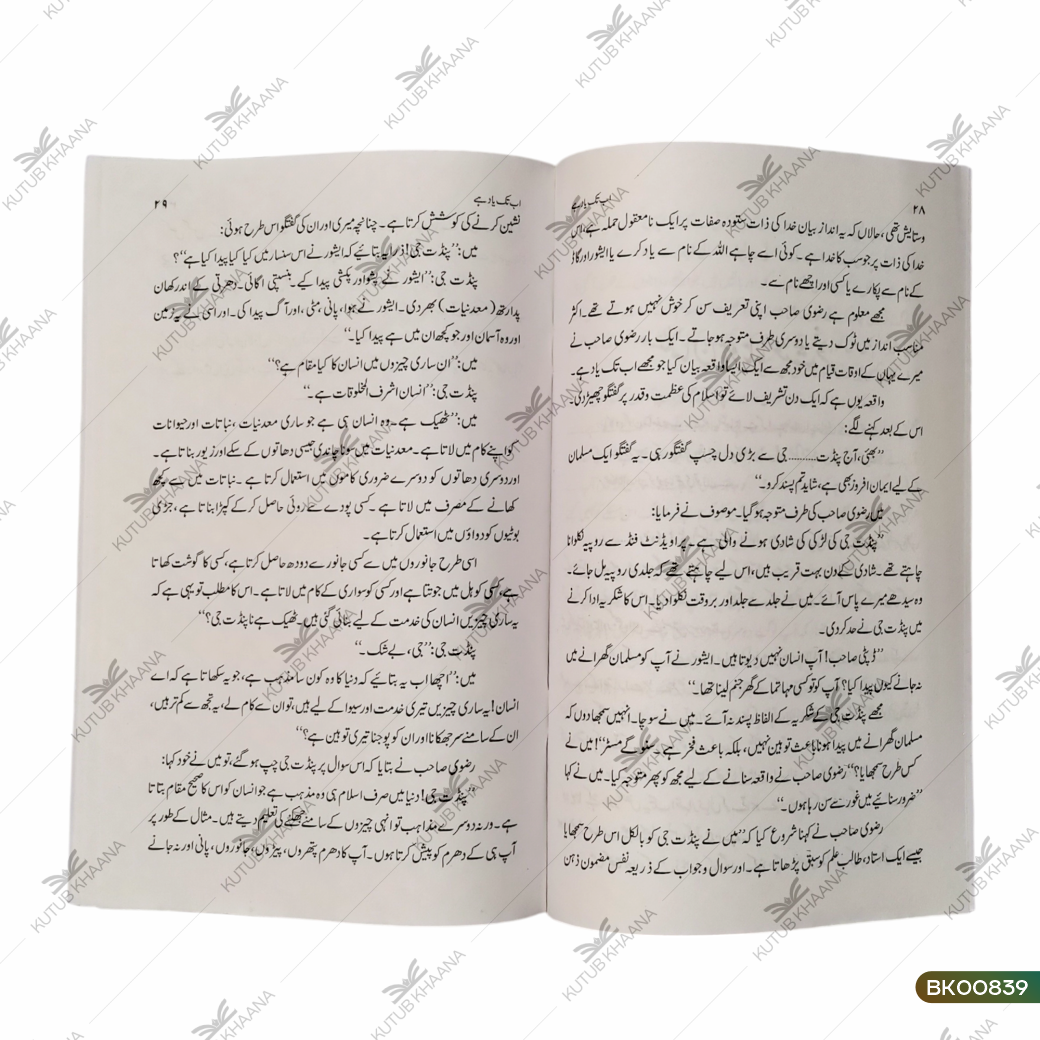 ۲۸
اب تک یاد ہے
وستایش تھی، حالاں کہ یہ انداز بیان خدا کی ذات ستودہ صفات پر ایک نامعقول حملہ ہے، اس
خدا کی ذات پر جو سب کا خدا ہے۔ کوئی اسے چاہے اللہ کے نام سے یاد کرے یا ایشور اور گاڈ
کے نام سے پکارے یا کسی اور اچھے نام سے۔
مجھے معلوم ہے رضوی صاحب اپنی تعریف سن کر خوش نہیں ہوتے تھے۔ اکثر
مناسب انداز میں ٹوک دیتے یا دوسری طرف متوجہ ہو جاتے۔ ایک بار رضوی صاحب نے
میرے یہاں کے اوقات قیام میں خود مجھ سے ایک ایسا واقعہ بیان کیا جو مجھے اب تک یاد ہے۔
واقعہ یوں ہے کہ ایک دن تشریف لائے تو اسلام کی عظمت و قدر پر گفتگو چھیڑ دی۔
اس کے بعد کہنے لگے:
’’بھئی، آج پنڈت.......... جی سے بڑی دل چسپ گفتگو رہی۔ یہ گفتگو ایک مسلمان
کے لیے ایمان افروز بھی ہے، شاید تم پسند کرو۔‘‘
میں رضوی صاحب کی طرف متوجہ ہو گیا۔ موصوف نے فرمایا:
’’پنڈت جی کی لڑکی کی شادی ہونے والی ہے۔ پراویڈنٹ فنڈ سے روپیہ نکلوانا
چاہتے تھے۔ شادی کے دن بہت قریب ہیں، اس لیے چاہتے تھے کہ جلدی روپیہ مل جائے۔
وہ سیدھے میرے پاس آئے۔ میں نے جلد سے جلد اور بروقت نکلوا دیا۔ اس کا شکریہ ادا کرنے
میں پنڈت جی نے حد کر دی۔
’’ڈپٹی صاحب! آپ انسان نہیں دیوتا ہیں۔ ایشور نے آپ کو مسلمان گھرانے میں
نہ جانے کیوں پیدا کیا؟ آپ کو تو کسی مہاتما کے گھر جنم لینا تھا۔‘‘
مجھے پنڈت جی کے شکریہ کے الفاظ پسند نہ آئے۔ میں نے سوچا۔ انہیں سمجھا دوں کہ
مسلمان گھرانے میں پیدا ہونا باعث توہین نہیں، بلکہ باعث فخر ہے۔ سنو گے مسٹر‘‘! میں نے
کس طرح سمجھایا؟‘‘ رضوی صاحب نے واقعہ سنانے کے لیے مجھ کو پھر متوجہ کیا۔ میں نے کہا
’’ضرور سنائیے میں غور سے سن رہا ہوں۔‘‘
رضوی صاحب نے کہنا شروع کیا کہ ’’میں نے پنڈت جی کو بالکل اس طرح سمجھایا
جیسے ایک استاد، طالب علم کو سبق پڑھاتا ہے۔ اور سوال و جواب کے ذریعہ نفس مضمون ذہن
اب تک یاد ہے
۲۹
نشین کرنے کی کوشش کرتا ہے۔ چنانچہ میری اور ان کی گفتگو اس طرح ہوئی:
میں: ’’پنڈت جی! ذرا یہ بتائیے کہ ایشور نے اس سنسار میں کیا کیا پیدا کیا ہے‘‘؟
پنڈت جی: ’’ایشور نے پشو اور پکشی پیدا کیے۔ بنسپتی اگائی۔ دھرتی کے اندر کھان
پدارتھ (معدنیات) بھر دی۔ ایشور نے ہوا، پانی، مٹی، اور آگ پیدا کی۔ اور اسی نے یہ زمین
اور وہ آسمان اور جو کچھ ان میں ہے پیدا کیا۔‘‘
میں: ’’ان ساری چیزوں میں انسان کا کیا مقام ہے؟‘‘
پنڈت جی: ’’انسان اشرف المخلوقات ہے۔‘‘
میں: ’’ٹھیک ہے۔ وہ انسان ہی ہے جو ساری معدنیات، نباتات اور حیوانات
کو اپنے کام میں لاتا ہے۔ معدنیات میں سونا چاندی جیسی دھاتوں کے سکے اور زیور بناتا ہے۔
اور دوسری دھاتوں کو دوسرے ضروری کاموں میں استعمال کرتا ہے۔ نباتات میں سے کچھ
کھانے کے مصرف میں لاتا ہے۔ کسی پودے سے روئی حاصل کر کے کپڑا بناتا ہے، جڑی
بوٹیوں کو دواؤں میں استعمال کرتا ہے۔
اسی طرح جانوروں میں سے کسی جانور سے دودھ حاصل کرتا ہے، کسی کا گوشت کھاتا
ہے، کسی کو ہل میں جوتتا ہے اور کسی کو سواری کے کام میں لاتا ہے۔ اس کا مطلب تو یہی ہے کہ
یہ ساری چیزیں انسان کی خدمت کے لیے بنائی گئی ہیں۔ ٹھیک ہے نا پنڈت جی؟‘‘
پنڈت جی: ’’جی، بے شک۔‘‘
میں: ’’اچھا اب یہ بتائیے کہ دنیا کا وہ کون سا مذہب ہے، جو یہ سکھاتا ہے کہ اے
انسان! یہ ساری چیزیں تیری خدمت اور سیوا کے لیے ہیں، تو ان سے کام لے، یہ تجھ سے کم تر ہیں،
ان کے سامنے سر جھکانا اور ان کو پوجنا تیری توہین ہے؟‘‘
رضوی صاحب نے بتایا کہ اس سوال پر پنڈت جی چپ ہو گئے، تو میں نے خود کہا:
’’پنڈت جی! دنیا میں صرف اسلام ہی وہ مذہب ہے جو انسان کو اس کا صحیح مقام بتاتا
ہے۔ ورنہ دوسرے مذاہب تو انہی چیزوں کے سامنے جھکنے کی تعلیم دیتے ہیں۔ مثال کے طور پر
آپ ہی کے دھرم کو پیش کرتا ہوں۔ آپ کا دھرم پتھروں، پیڑوں، جانوروں، پانی اور نہ جانے
KUTUB KHAANA
BK00839